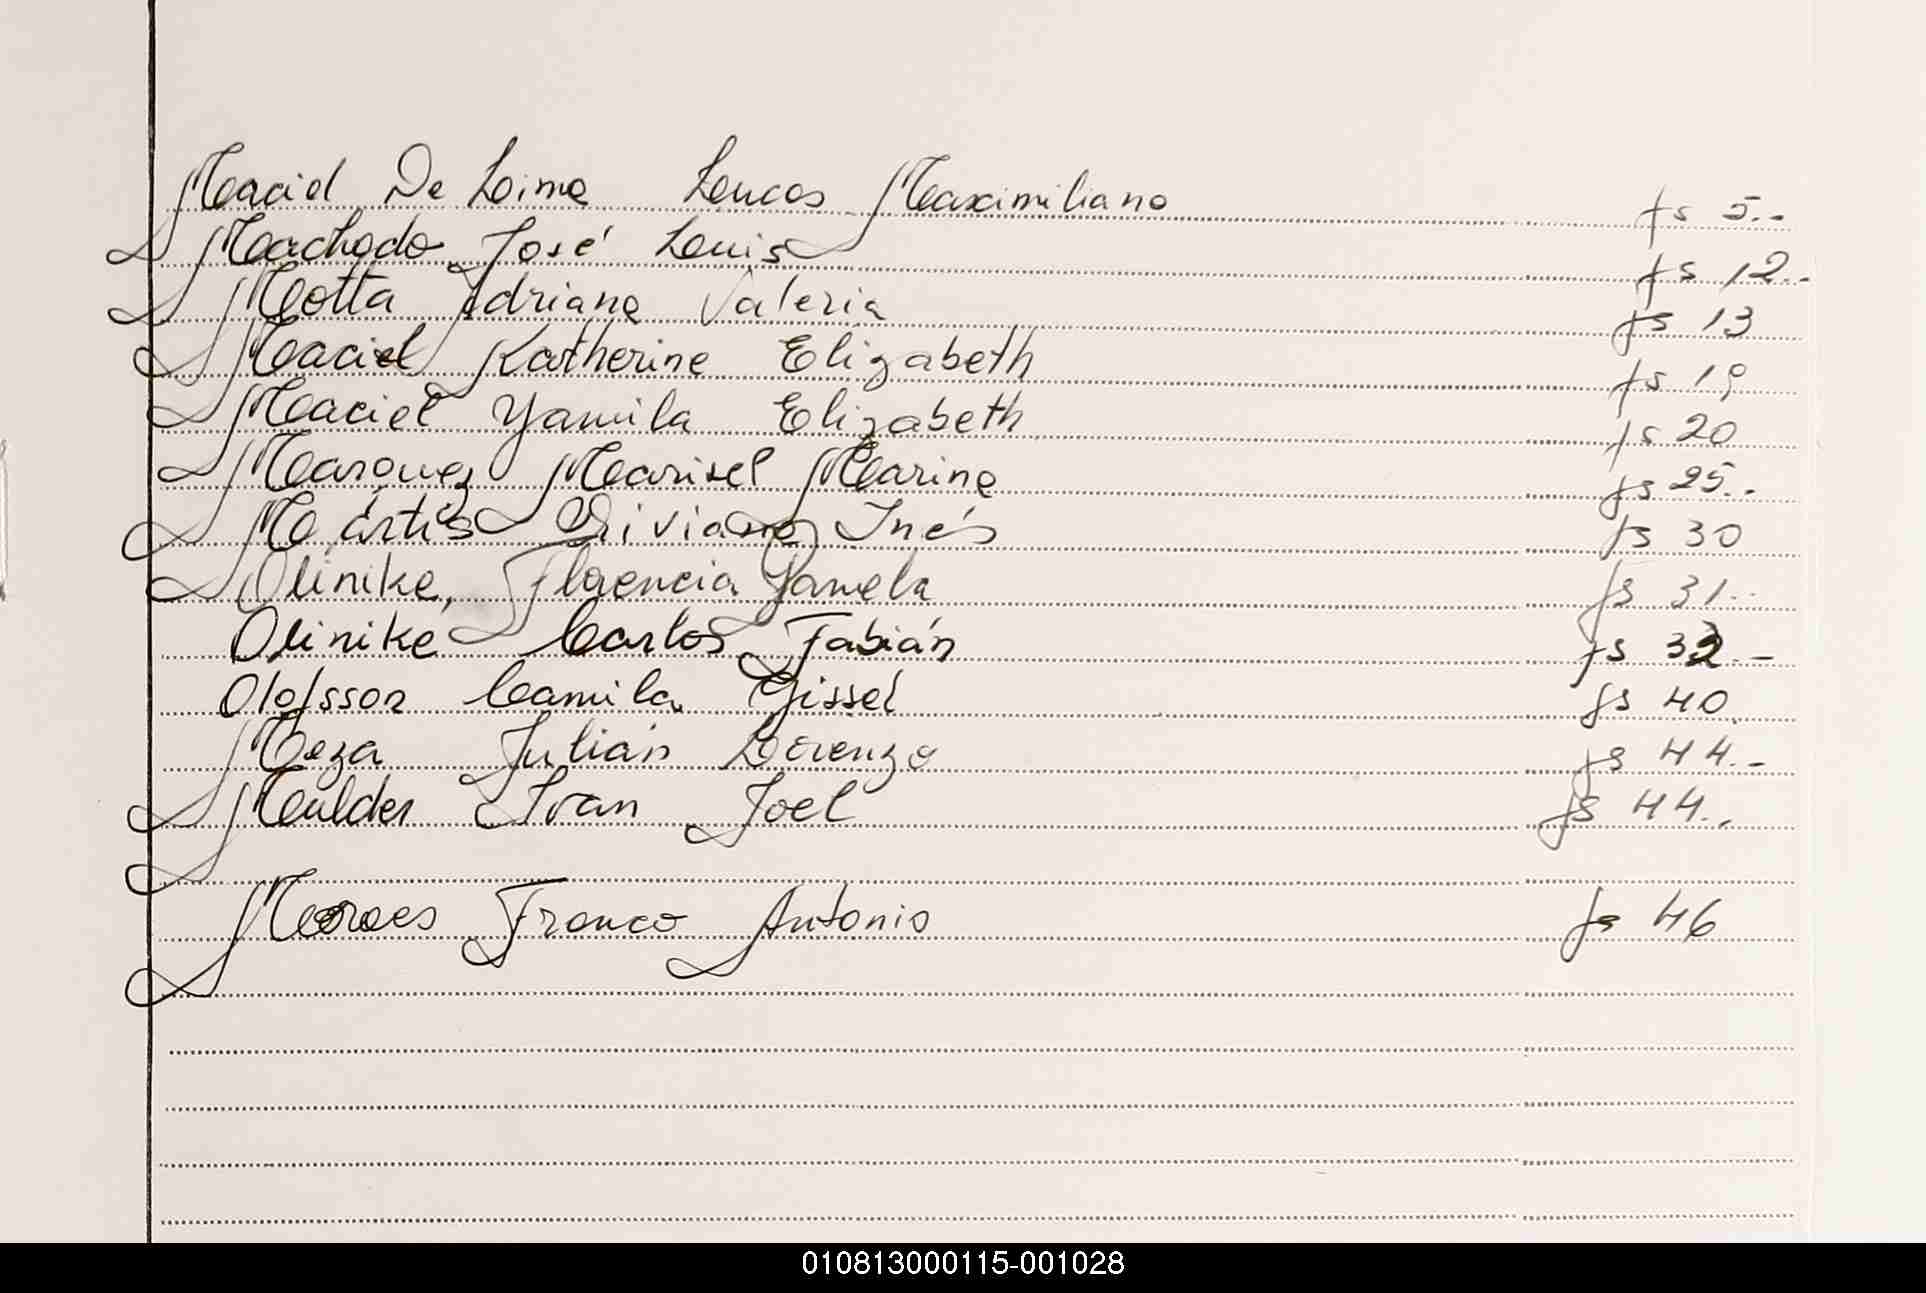 Maciel De Lima Lucas Maximiliano fs 5..
Machado José Luis fs 12..
Motta Adriana Valeria fs 13
Maciel Katherine Elizabeth fs 19
Maciel Yamila Elizabeth fs 20
Marquez Marisel Marina fs 25..
Martis Viviana Inés fs 30
Olinike, Florencia Pamela fs 31..
Olinike Carlos Fabián fs 32.-
Olofsson Camila Gissel fs 40
Meza Julián Lorenzo fs 44.-
Mulder Ivan Joel fs 44..
Moraes Franco Antonio fs 46
010813000115-001028